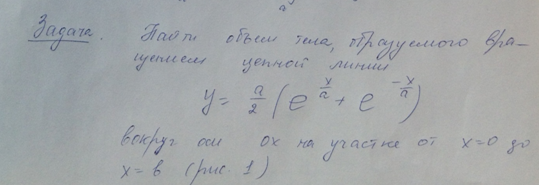 Задача. Найти объем тела, образуемого вра-
щением цепной линии
y = a/2 (e^{x/a} + e^{-x/a})
вокруг оси ox на участке от x=0 до
x = в (рис. 1)